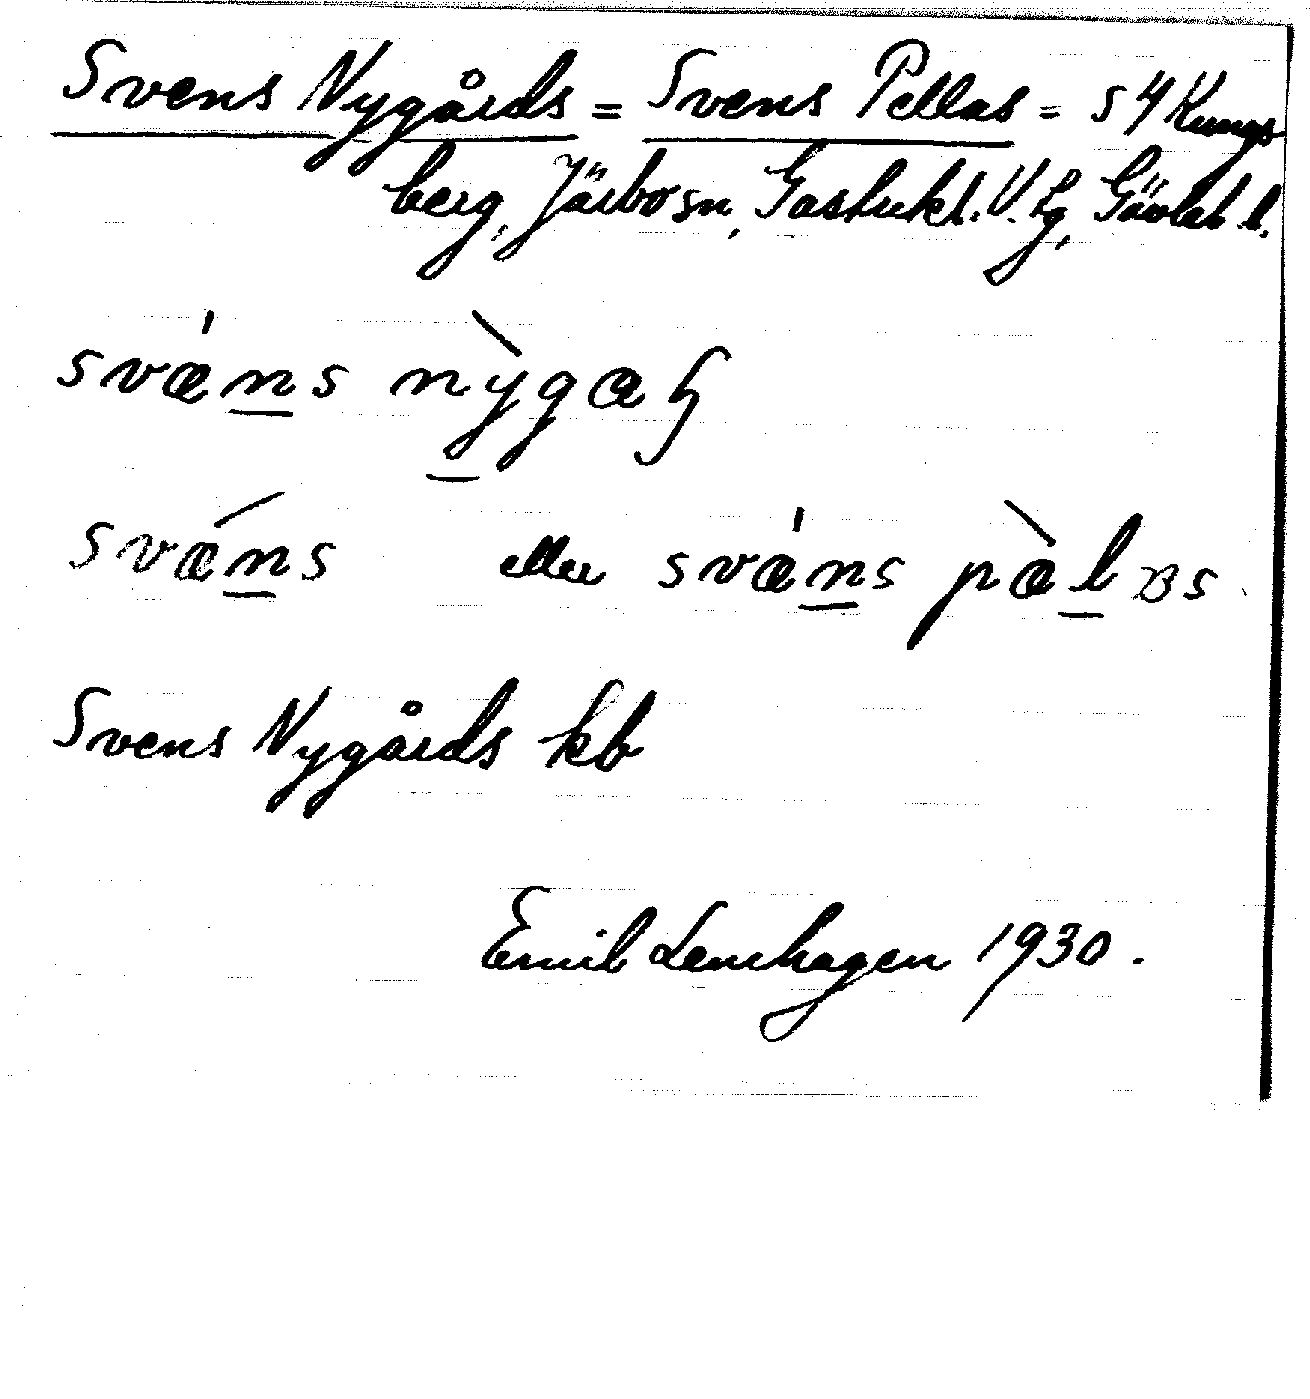 Svens Nygårds = Svens Pellas = 54 Kungs
berg, Järbo sn, Gästrikl. V. Lg, Gävleb. l.
svæ̀ns nỳga
svǽns eller svǽns pæ̀l s
Svens Nygårds kb
Emil Lenhagen 1930.